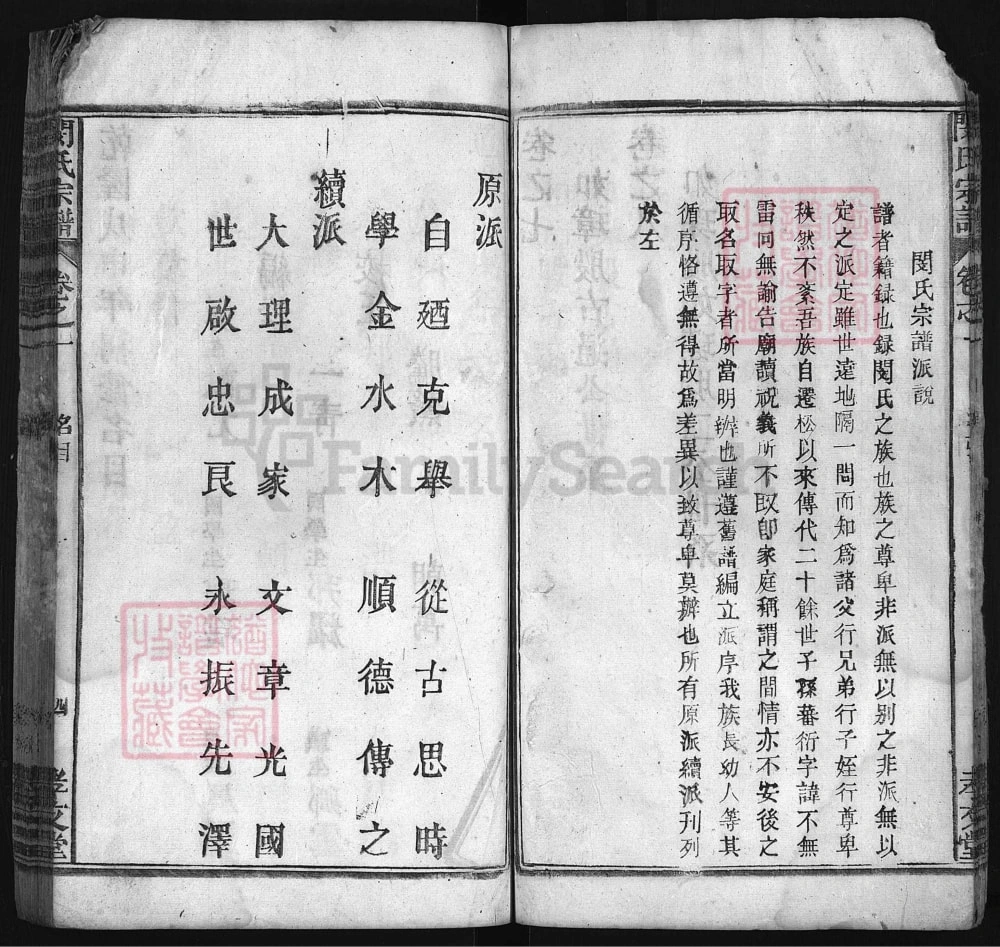 閔氏宗譜派說
譜者籍録也録閔氏之族也族之尊卑非派無以别之非派無以
定之派定雖世遠地隔一問而知為諸父行兄弟行子姪行尊卑
秩然不紊吾族自遷松以來傳代二十餘世子孫蕃衍字諱不無
雷同無論告廟讀祝義所不取即家庭稱謂之間情亦不安後之
取名取字者所當明辨也謹遵舊譜編立派序我族長幼人等其
循序恪遵無得故為差異以致尊卑莫辦也所有原派續派刊列
於左
原派
自廼克舉從古思時
學金水木順德傳之
續派
大理成家文章光國
世啟忠良永振先澤
閔氏宗譜
卷之一
名目
四
孝友堂
FamilySearch